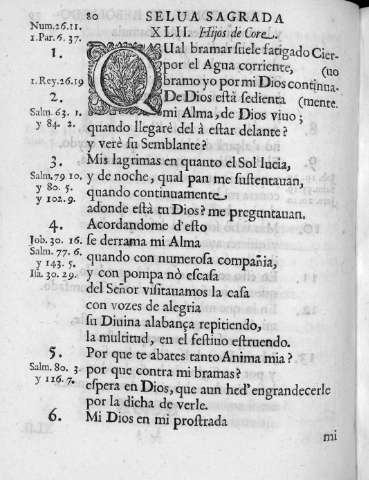 80 SELUA SAGRADA
Num.26.11. XLII. Hijos de Core.
1.Par.6.37. QUal bramar suele fatigado Cier-
por el Agua corriente, (uo
1.Rey.26.19 bramo yo por mi Dios continua-
2. De Dios està sedienta (mente.
Salm.63.1. mi Alma, de Dios viuo;
y 84.2. quando llegarè del à estar delante?
y verè su Semblante?
3. Mis lagrimas en quanto el Sol lucia,
Salm.79 10. y de noche, qual pan me sustentauan,
y 80.5. quando continuamente
y 102.9. adonde està tu Dios? me preguntauan.
4. Acordandome d'esto
Job.30.16. se derrama mi Alma
Salm.77.6. quando con numerosa compañia,
y 143.5.
Isa.30.29. y con pompa nò escasa
del Señor visitauamos la casa
con vozes de alegria
su Diuina alabança repitiendo,
la multitud, en el festiuo estruendo.
5. Por que te abates tanto Anima mia?
Salm.80.3. por que contra mi bramas?
y 116.7. espera en Dios, que aun hed'engrandecerle
por la dicha de verle.
6. Mi Dios en mi prostrada
mi